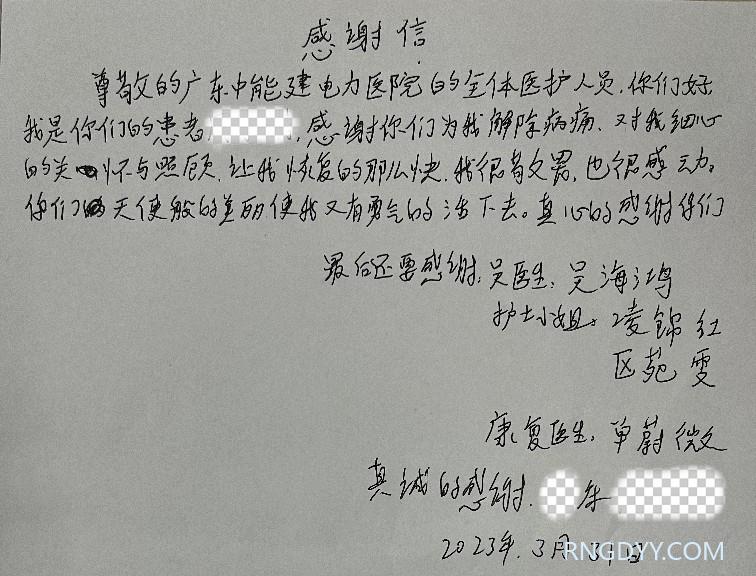 感谢信
尊敬的广东中能建电力医院的全体医护人员.你们好
我是你们的患者 ,感谢你们为我解除病痛、又对我细心
的关怀与照顾,让我恢复的那么快,我很欣慰,也很感动。
你们天使般的美丽使我又有勇气的活下去。真心的感谢你们
最后还要感谢,吴医生,吴海鸿
护士小姐,凌锦红
区苑雯
康复医生,单蔚微
真诚的感谢.
2023年.3月31日
RNGDYY.COM